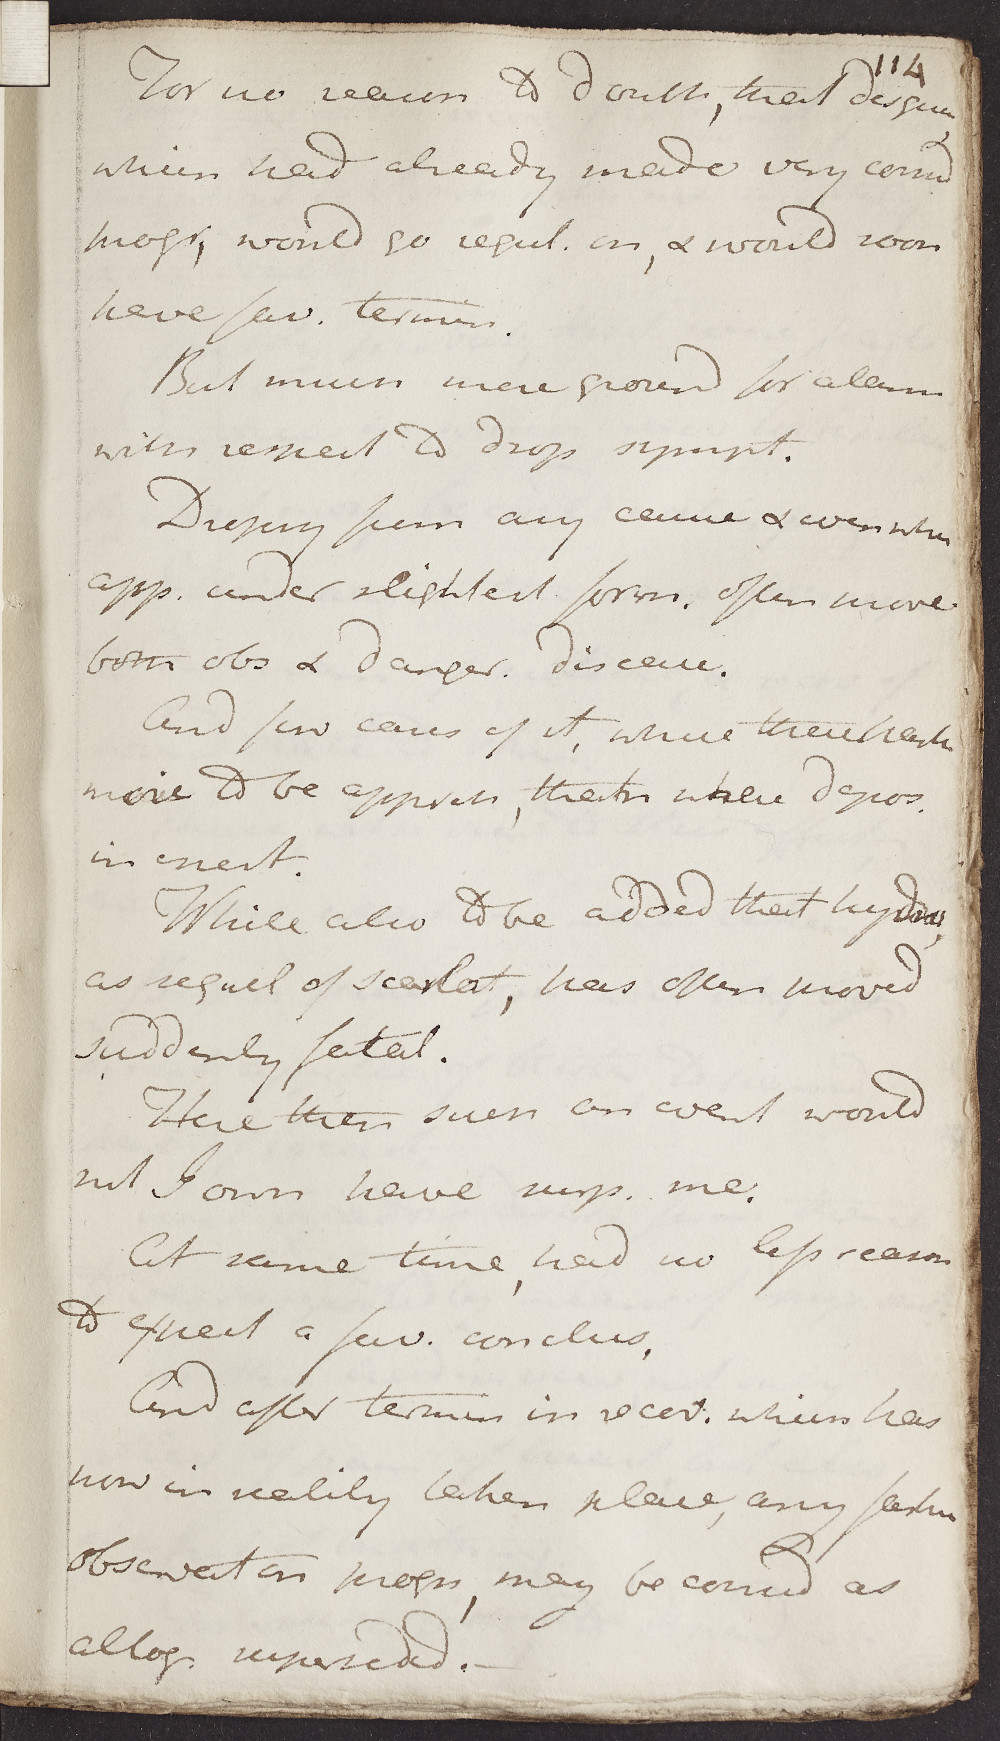 114
For no reason to doubt, that desquam,
which had already made very consid
progr, would go regul. on, & would soon
have fav. termin.
But much more ground for alarm
with respect to drop sympt.
Dropsy from any cause & even when
app. under slightest form. often prove
both obs & danger. disease.
And few cases of it, where there has
more to be appreh, than where depos.
in chest.
While also to be added that hydro,
as sequel of scarlat, has often proved
suddenly fatal.
Here then such an event would
not I own have surp. me.
At same time, had no less reason
to expect a fav. conclus,
And after termin in recov. which has
now in reality taken place, any farther
observat on progr, may be consid as
altog. superseded. —